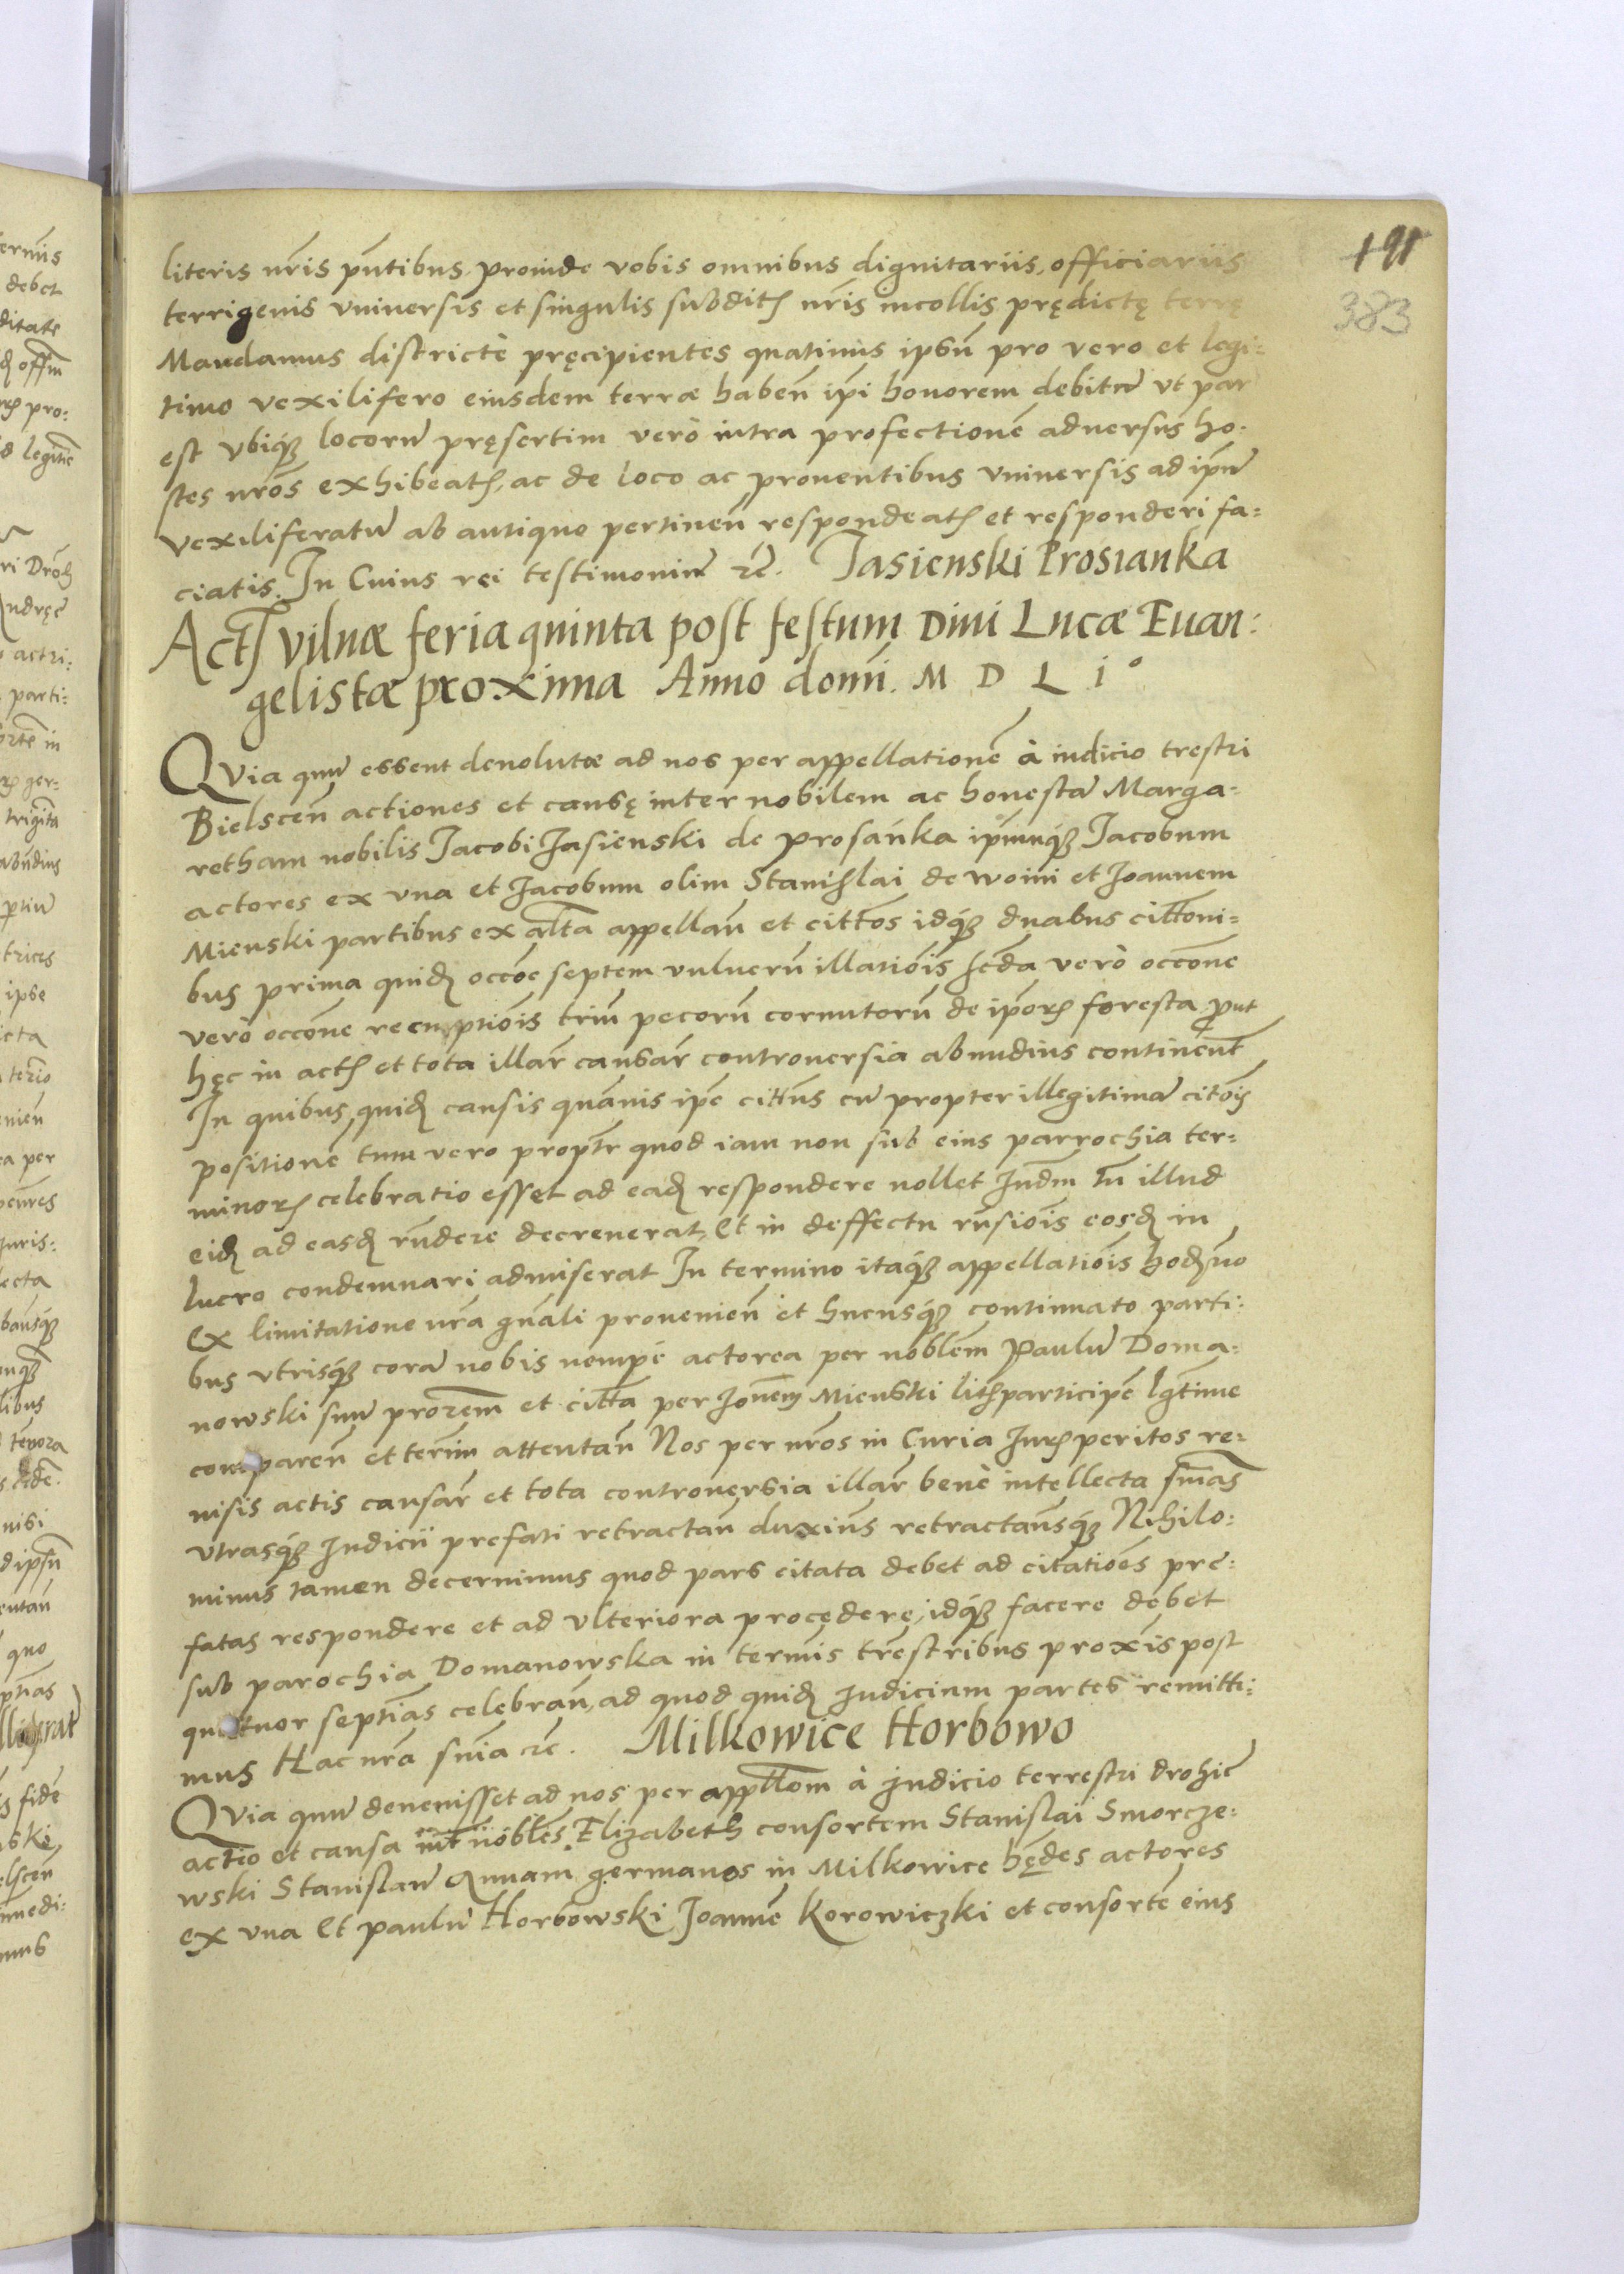 191
383
literis nr̃is pn̄tibus. proinde vobis omnibus dignitariis, officiariis
terrigenis vniversis et singulis subditꝭ nr̃is incollis prędictę terrę
Mandamus districtè pręcipientes quatinus ipsũ pro vero et legi=
timo vexilifero eiusdem terræ habeñ ip̃i honorem debitũ vt par
est vbiqꝫ locorũ pręsertim verò intra profectionẽ adversus ho=
stes nr̃os exhibeatꝭ, ac de loco ac proventibus vniversis ad ip̃ũ
vexiliferatũ ab antiquo pertineñ respondeatꝭ et responderi fa=
ciatis. In Cuius rei testimoniũ ⁊c̃. Jasienski Prosianka
Actꝭ vilnæ feria quinta post festum Divi Lucæ Euan:
gelistæ proxima Anno domi̇̃. M D L i°
QVia quũ essent devolutæ ad nos per appellationẽ à iudicio trestri
Bielsceñ actiones et causę inter nobilem ac honestã Marga=
retham nobilis Jacobi Jasienski de prosanka ip̃muqꝫ Jacobum
actores ex vna et Jacobum olim Staniſlai de woini et Joannem
Mienski partibus ex alt̃a appellañ et citt̃os idqꝫ duabus citt̃oni=
bus prima quidꝫ occõe septem vulnerũ illatiõis scd̃a verò occõne
verò occõne recuptiõis triũ pecorũ cornutorũ de ip̃orꝭ foresta p̃ut
hęc in actꝭ et tota illar̃ causar̃ controversia abundius continent̃
In quibus quidꝫ causis quãuis ip̃e citt̃us cũ propter illegitimã citõis
positionẽ tum vero propt̃r quod iam non sub eius parrochia ter=
minorꝭ celebratio esset ad eadꝫ respondere nollet Jud̃m tñ illud
eidꝫ ad easdꝫ rñdere decreverat, Et in deffectu rñsiõis eosdꝫ in
lucro condemnari admiserat In termino itaqꝫ appellatiõis hodꝫno
Ex limitatione nr̃a gñali provenieñ et hucusqꝫ continuato parti=
bus vtrisqꝫ corã nobis nempè actorea per noblẽm Paulũ Doma=
nowski suũ pror̃em et citt̃a per Joñem Mienski litꝭ participẽ lgt̃ime
compareñ et ter̃im attentañ Nos per nr̃os in Curia Jurꝭ peritos re=
visis actis causar̃ et tota controversia illar̃ benè intellecta sñias
vtrasqꝫ Judicii prefati retractañ duxim̃s retractamꝰqꝫ Nihilo=
minus tamen decernimus quod pars citata debet ad citatiões pre=
fatas respondere et ad vlteriora procędere, idqꝫ facere debet
sub parochia Domanowska in termĩs tr̃estribus proxĩs post
quatuor septĩas celebrañ, ad quod quidꝫ Judicium partes remitti=
mus Hac nr̃a sñia ⁊c̃. Milkowice Horbowo
QVia quũ devenisset ad nos per appllt̃om à Judicio terrestri drohic̃
actio et causa int̃ nobles̃ Elizabeth consortem Stanislai Smorcze=
wski Stanislaũ Annam germanos in Milkowice hęd̃es actores
ex vna Et paulũ Horbowski, Joannẽ Korowiczki et consortẽ eius